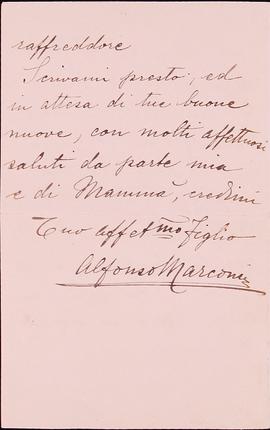 raffreddore
Scrivimi presto, ed
in attesa di tue buone
nuove, con molti affettuosi
saluti da parte mia
e di Mamma, credimi
Tuo affetmo figlio
Alfonso Marconi